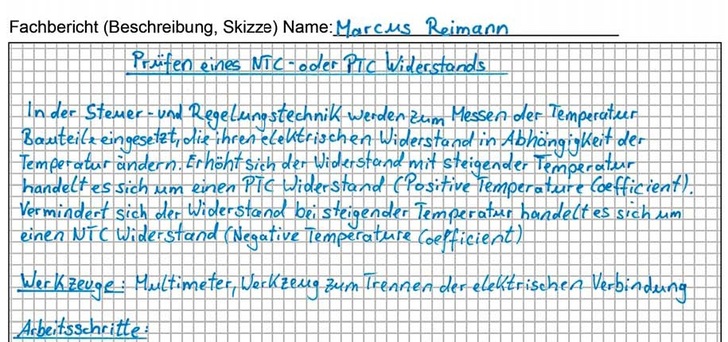 Fachbericht (Beschreibung, Skizze) Name: Marcus Reimann
Prüfen eines NTC- oder PTC Widerstands
In der Steuer- und Regelungstechnik werden zum Messen der Temperatur
Bauteile eingesetzt, die ihren elektrischen Widerstand in Abhängigkeit der
Temperatur ändern. Erhöht sich der Widerstand mit steigender Temperatur
handelt es sich um einen PTC Widerstand (Positive Temperature Coefficient).
Vermindert sich der Widerstand bei steigender Temperatur handelt es sich um
einen NTC Widerstand (Negative Temperature Coefficient)
Werkzeuge: Multimeter, Werkzeug zum Trennen der elektrischen Verbindung
Arbeitsschritte: